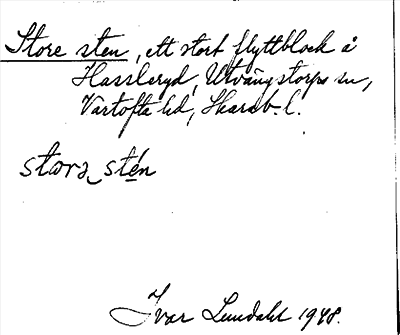 Store sten, ett stort flyttblock å
Hassleryd, Utvängstorps sn,
Vartofta hd, Skarab. l.
stωrə stén
Ivar Lundahl 1948.